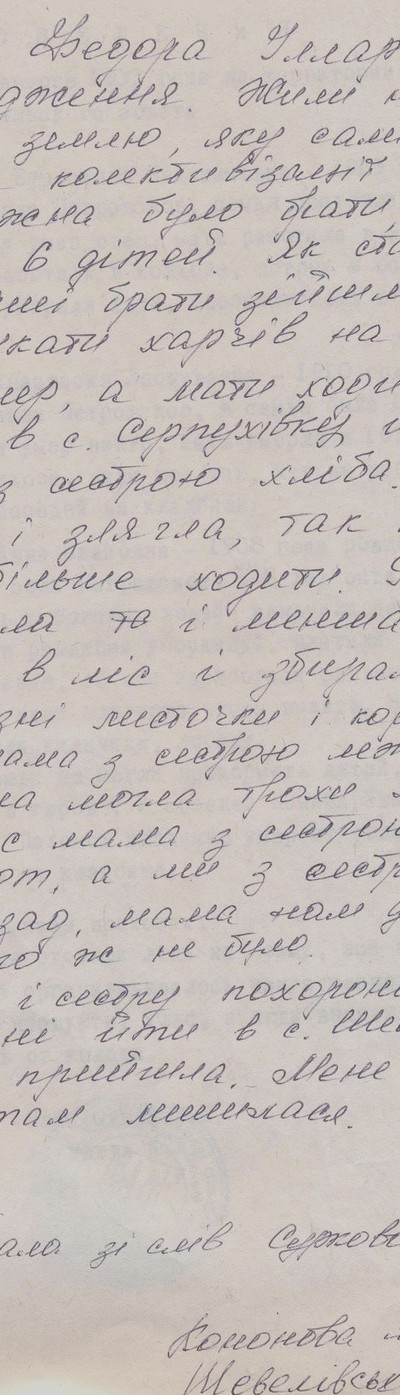 Федора Іллар
дження. Жили
землю, яку сами
колективізації
жна було брати,
6 дітей. Як ста
ші брати зійшл
кати харчів на
мер, а мати ходи
в с. Серпухівку
з сестрою хліба.
і злягла, так
більше ходити.
ла то і менша
в ліс і збирал
зні листочки і кор
мама з сестрою леж
на могла трохи
с мама з сестрою
от, а ми з сестр
зад, мама нам д
го ж не було.
і сестру похорони
ні йти в с. Ше
прийшла. Мене
там лишилася.
ала зі слів Суркови
Кононова
Шевелівськ